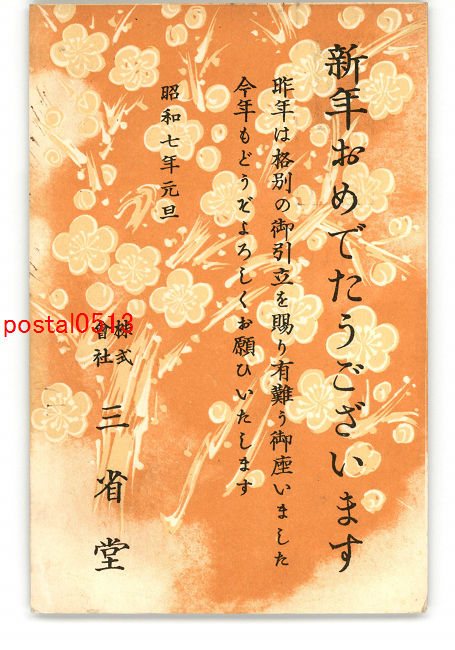 新年おめでたうございます
昨年は格別の御引立を賜り有難う御座いました
今年もどうぞよろしくお願ひいたします
昭和七年元旦
株式會社 三省堂
postal0513